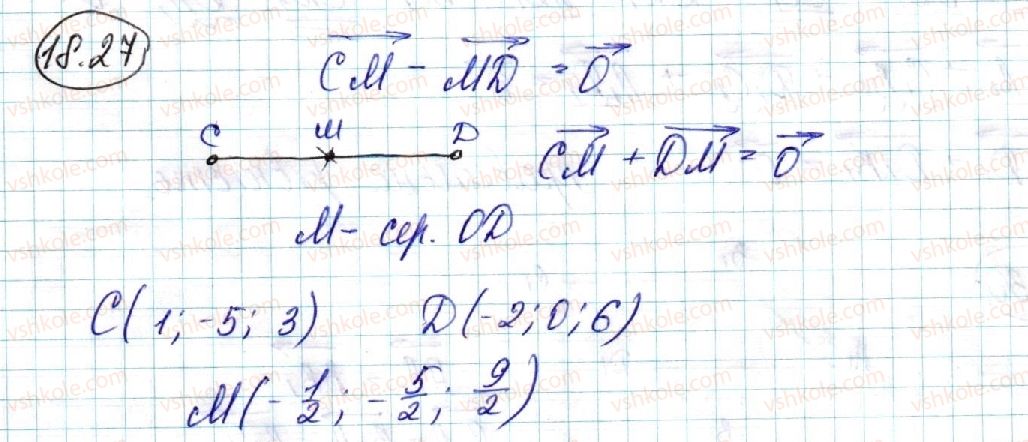 18.27
$\overrightarrow{CM} - \overrightarrow{MD} = \overrightarrow{0}$
C M D
$\overrightarrow{CM} + \overrightarrow{DM} = \overrightarrow{0}$
M - сер. OD
C(1; -5; 3) D(-2; 0; 6)
$M(-\frac{1}{2}; -\frac{5}{2}; \frac{9}{2})$